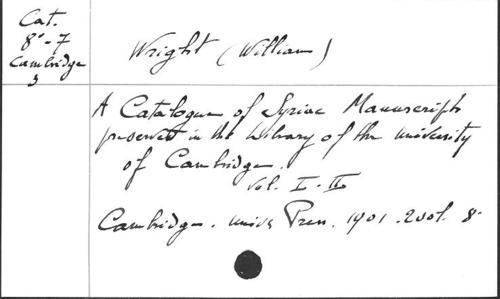 Cat.
8°-7
Cambridge
3
Wright (William)
A Catalogue of Syriac Manuscripts
preserved in the Library of the University
of Cambridge.
Vol. I-II
Cambridge. Univ. Press. 1901. 2 vol. 8°